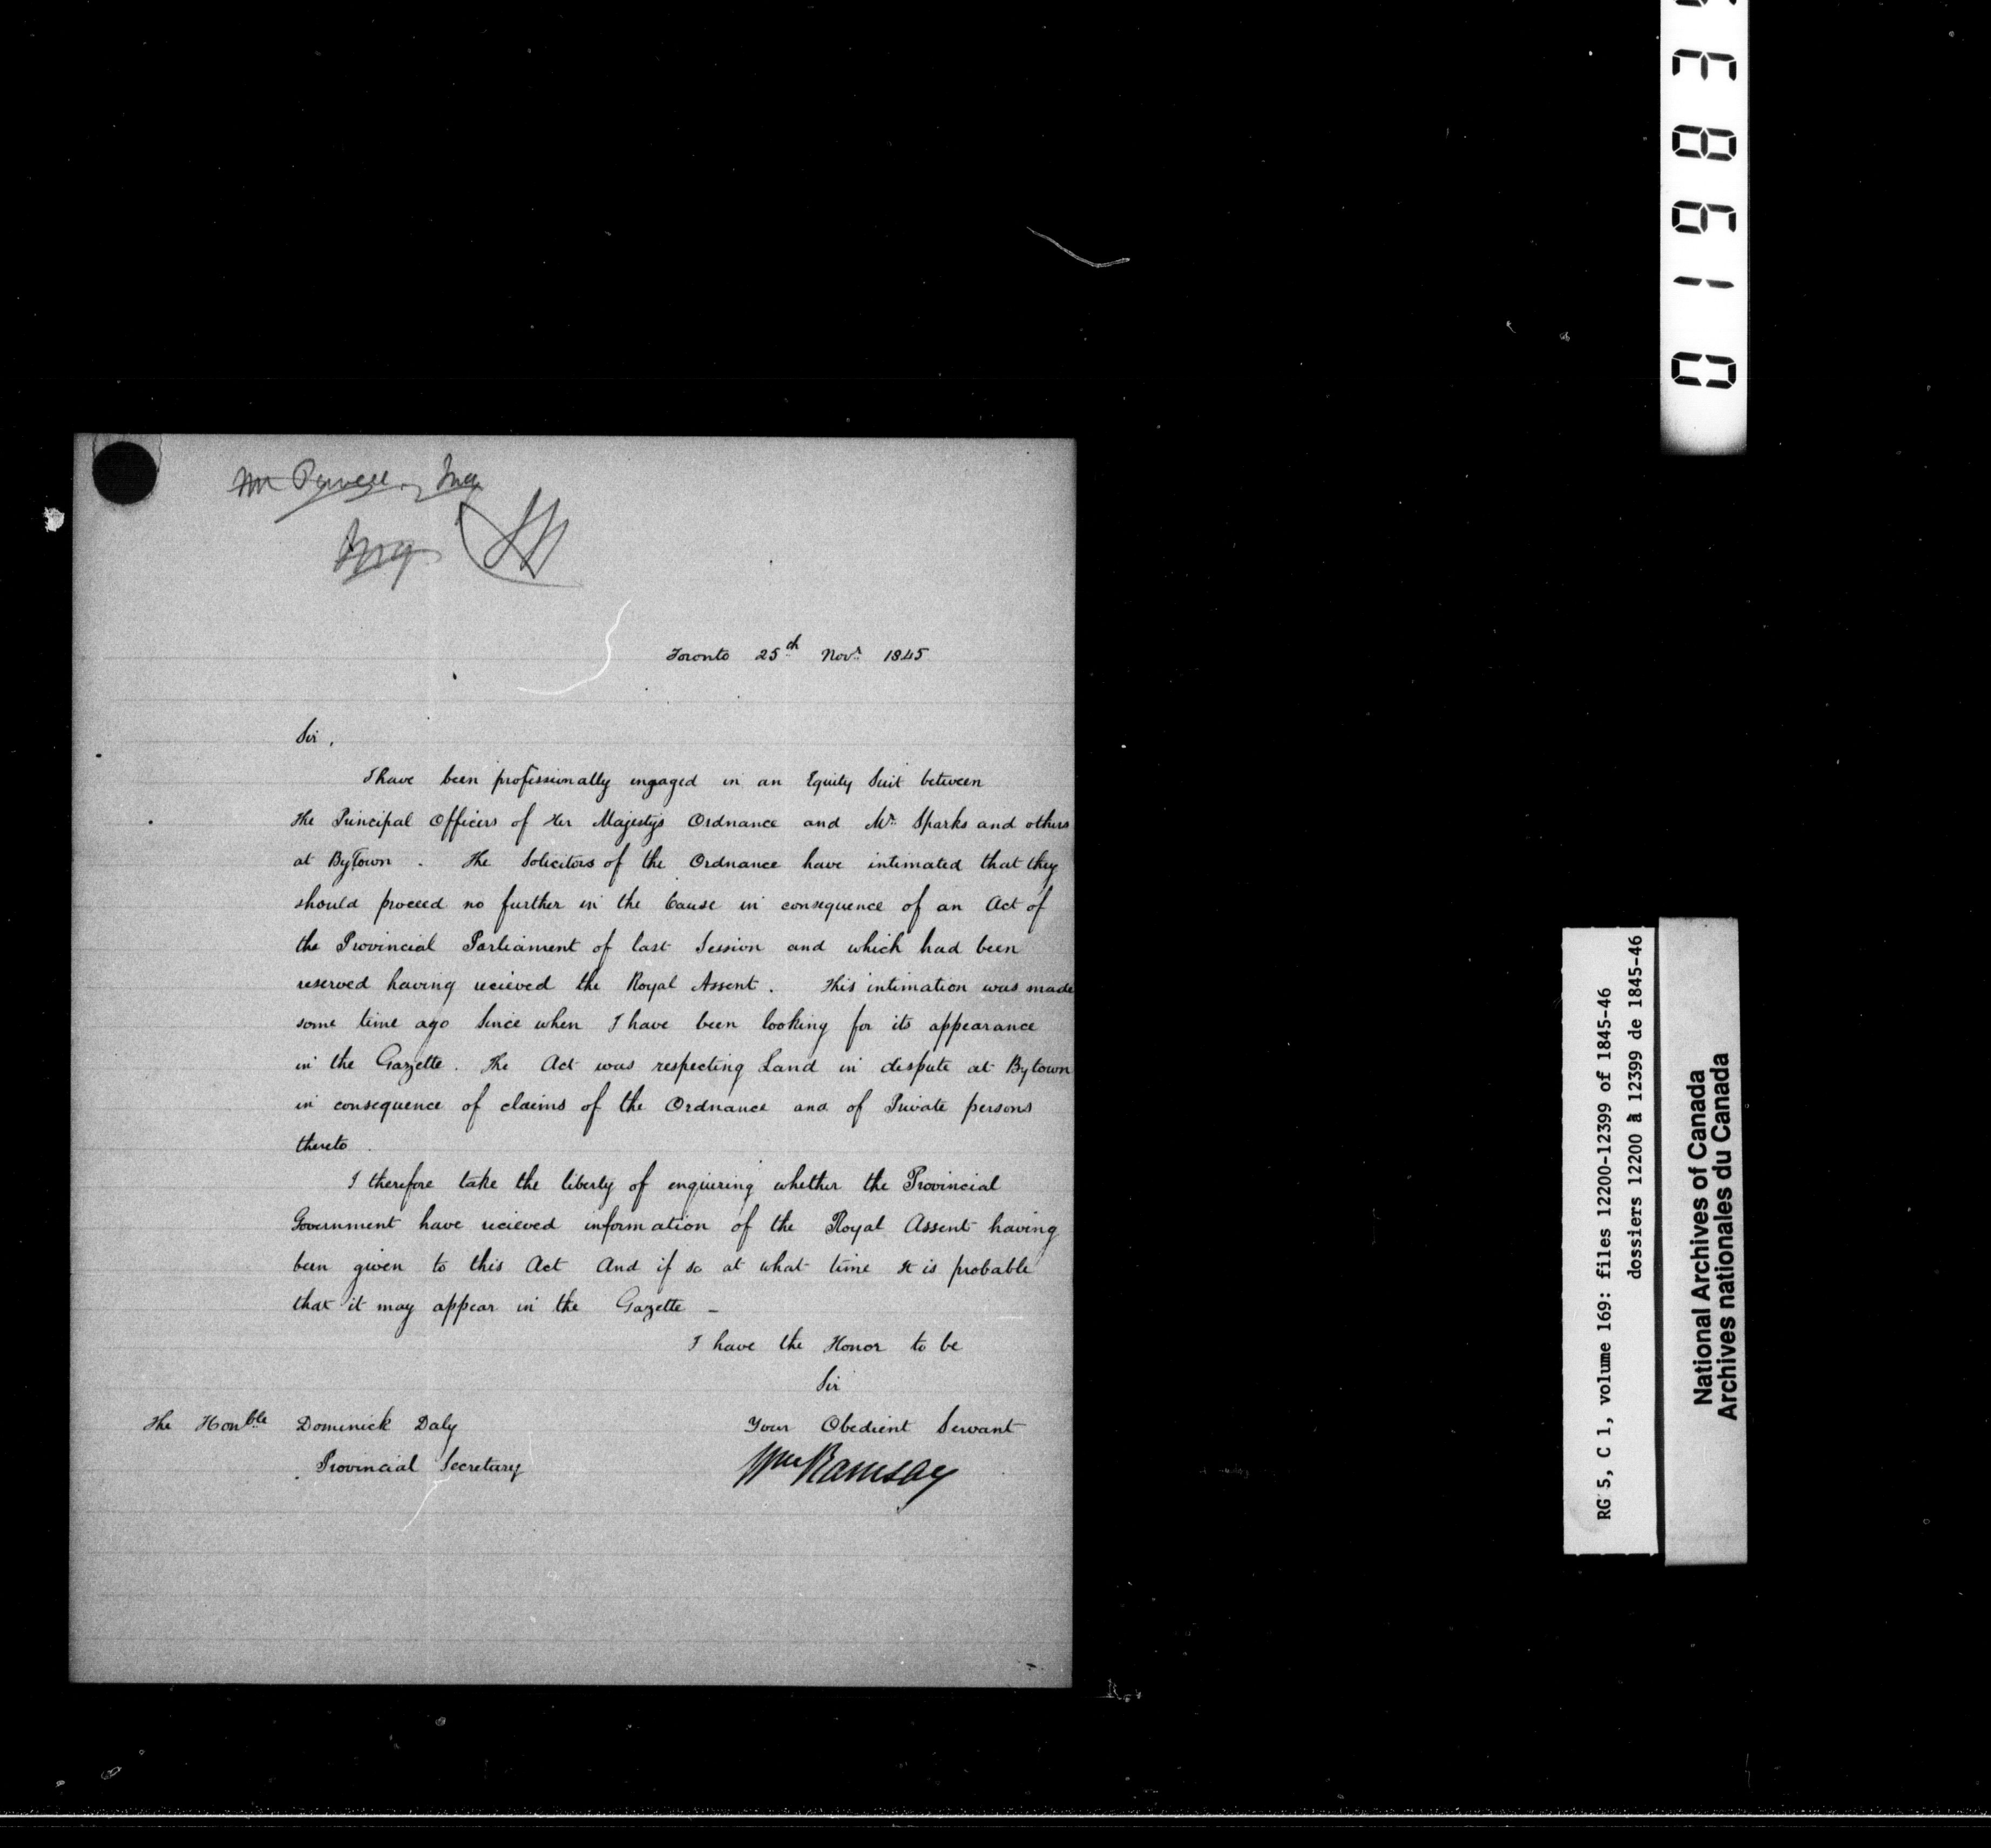 Toronto 25th Novr 1845
Sir,
I have been professionally engaged in an Equity Suit between
the Principal Officers of Her Majestys Ordnance and Mr Sparks and others
at ByTown. The Solicitors of the Ordnance have intimated that they
should proceed no further in the Cause in consequence of an Act of
the Provincial Parliament of last Session and which had been
reserved having recieved the Royal Assent. This intimation was made
some time ago Since when I have been looking for its appearance
in the Gazette. The Act was respecting Land in dispute at Bytown
in consequence of claims of the Ordnance and of Private persons
thereto.
I therefore take the liberty of enquiring whether the Provincial
Government have recieved information of the Royal Assent having
been given to this Act And if so at what time it is probable
that it may appear in the Gazette –
I have the Honor to be
Sir
Your Obedient Servant
Wm Ramsay
The Honble Dominick Daly
Provincial Secretary
RG 5, C 1, volume 169: files 12200-12399 of 1845-46
dossiers 12200 à 12399 de 1845-46
National Archives of Canada
Archives nationales du Canada